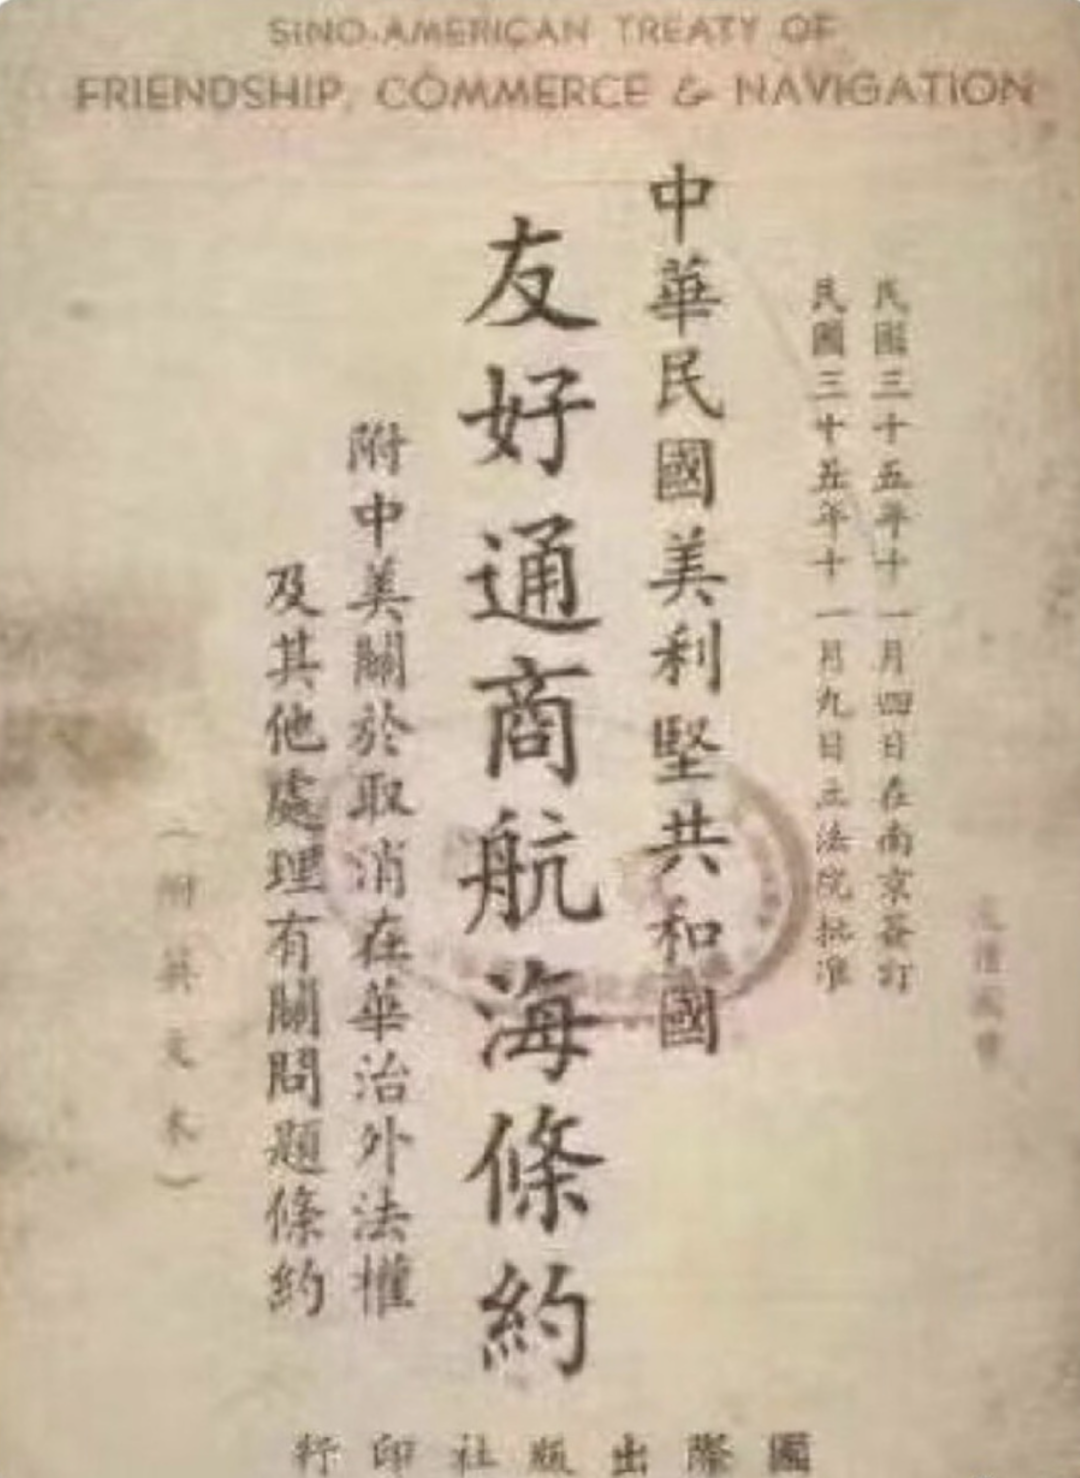 SINO-AMERICAN TREATY OF
FRIENDSHIP, COMMERCE & NAVIGATION
民國三十五年十一月四日在南京簽訂
民國三十五年十一月九日立法院批准
中華民國美利堅共和國
友好通商航海條約
附中美關於取消在華治外法權
及其他處理有關問題條約
（附英文本）
國際出版社印行